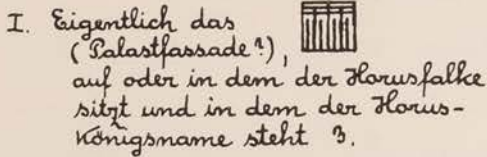 I. Eigentlich das
(Palastfassade?),
auf oder in dem der Horusfalke
sitzt und in dem der Horus-
königsname steht 3.